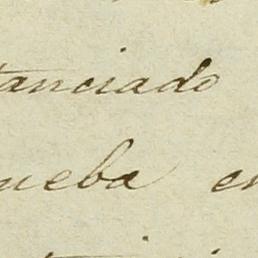 tanciado
ueba en